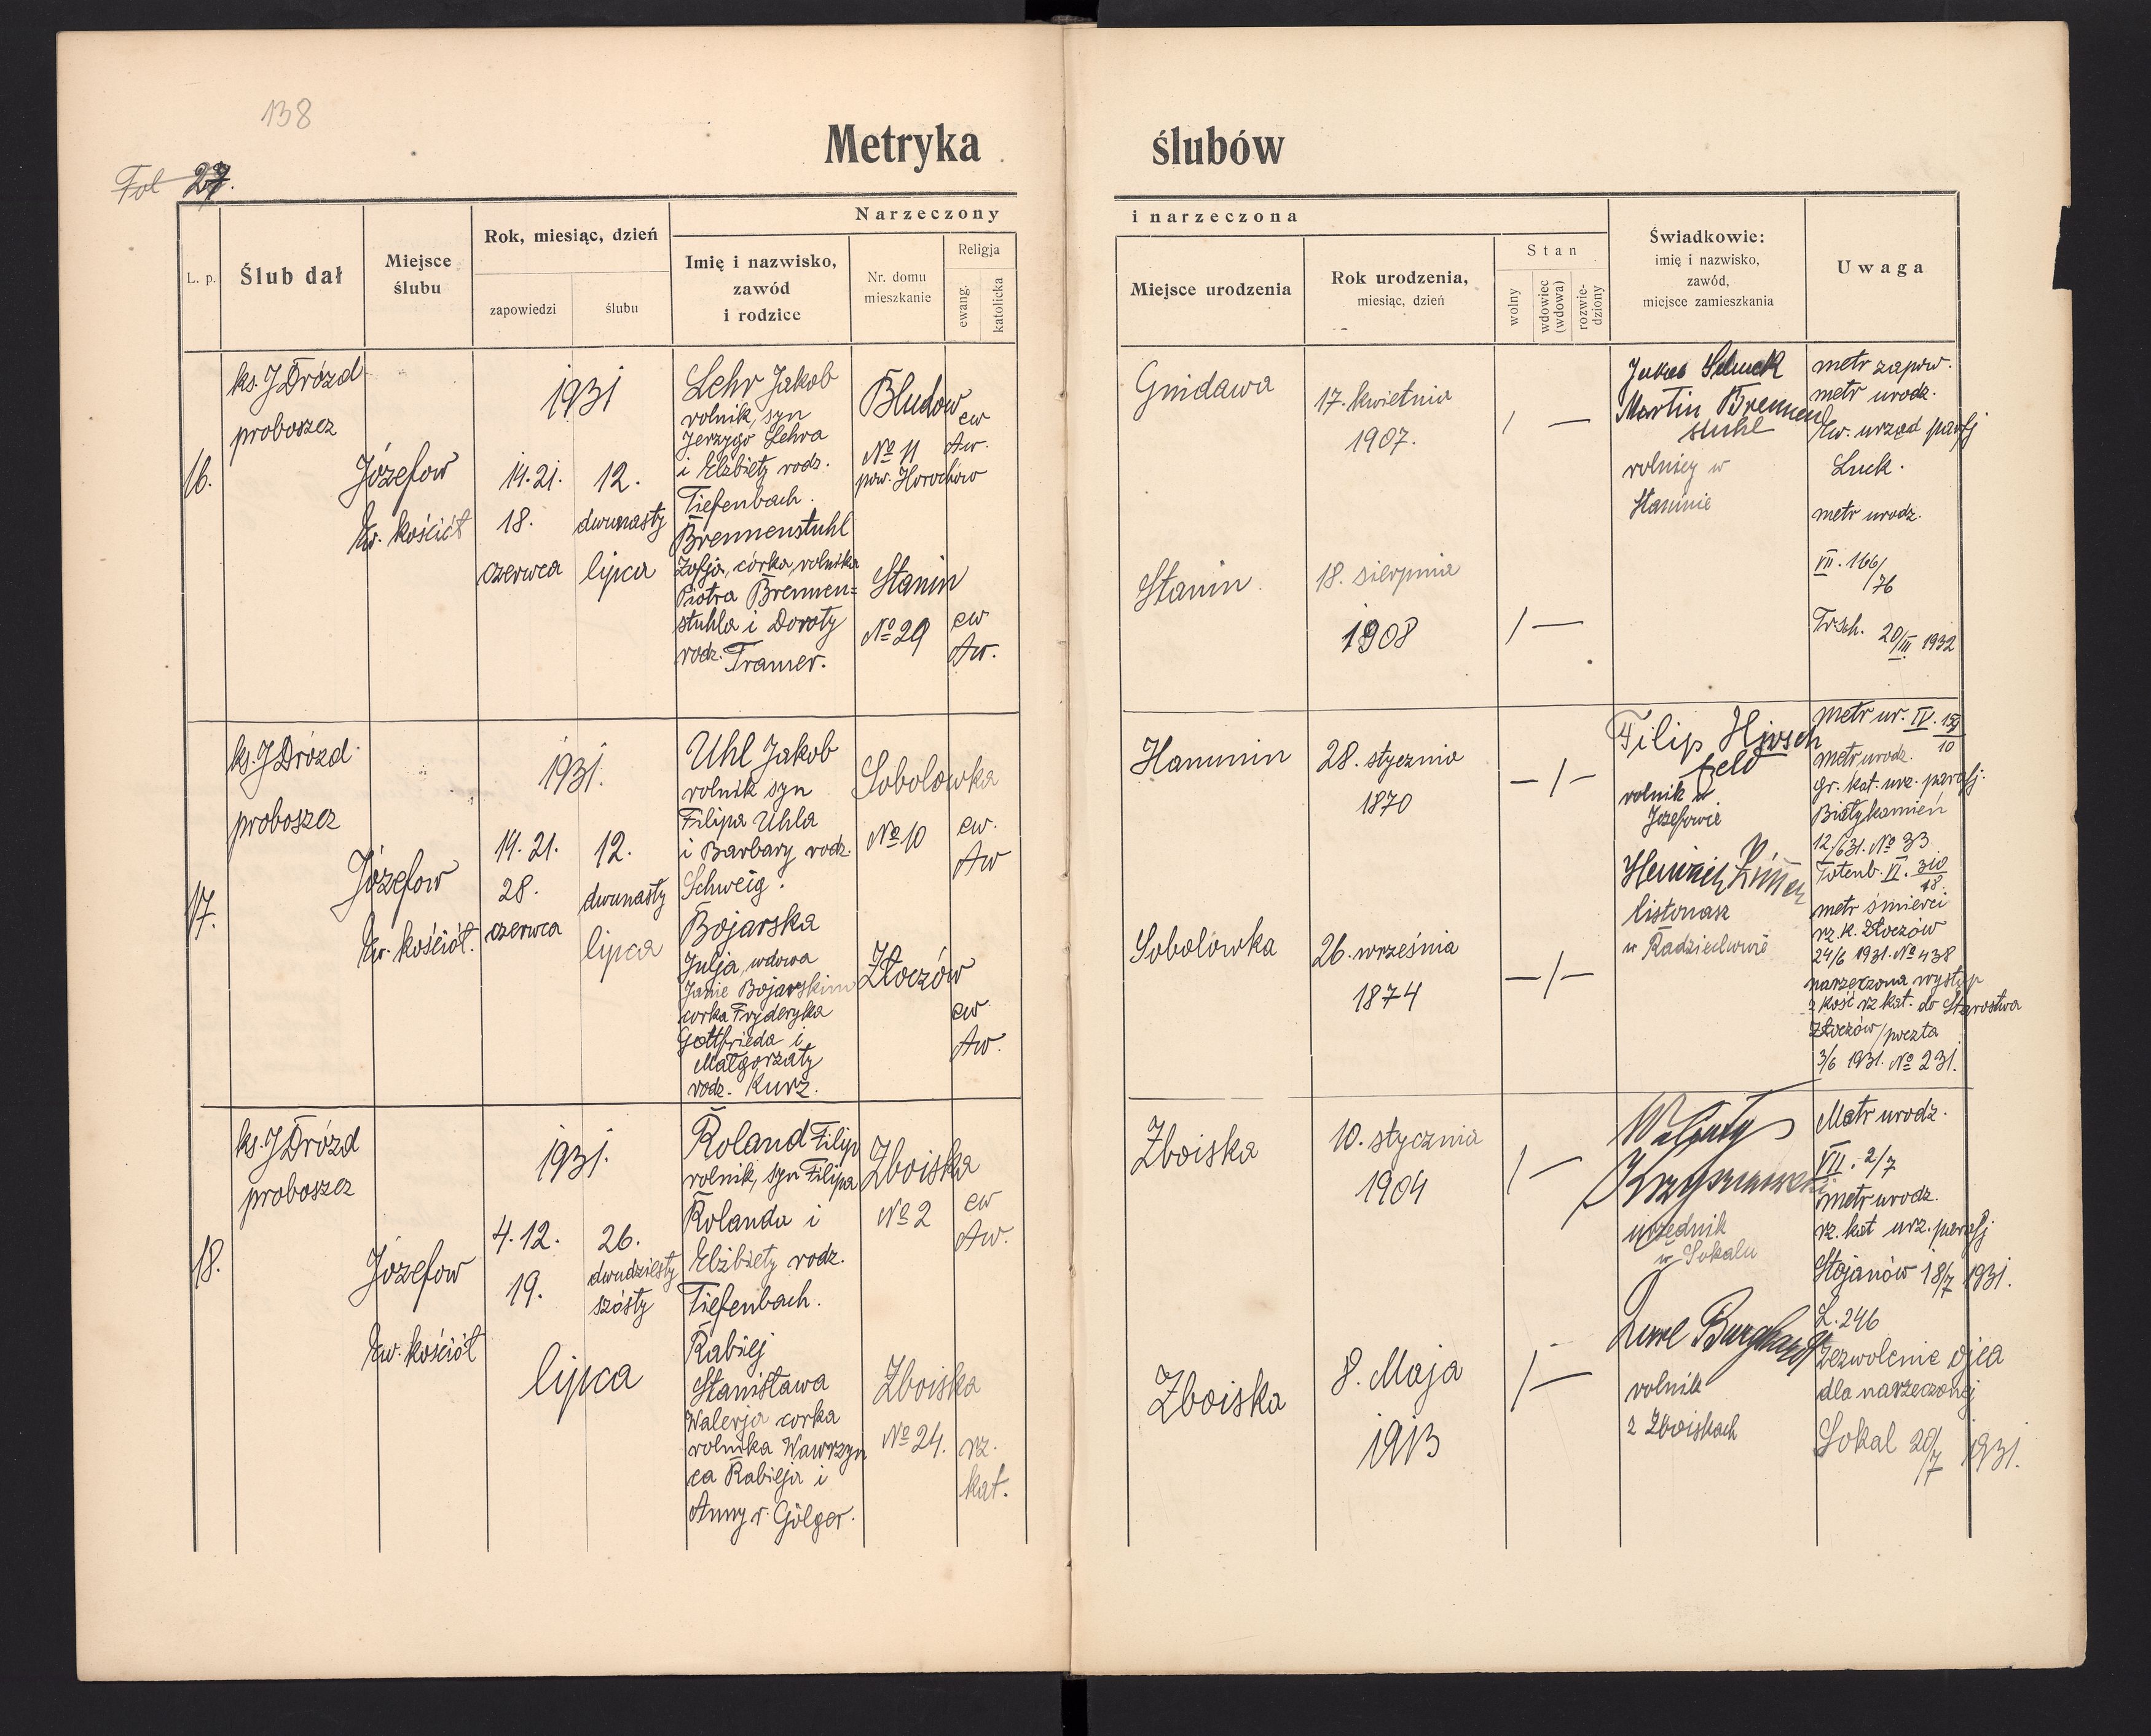 138
Metryka ślubów
Fol 27.
L. p.
Ślub dał
Miejsce
ślubu
Rok, miesiąc, dzień
zapowiedzi
ślubu
Narzeczony
Imię i nazwisko,
zawód
i rodzice
Nr. domu
mieszkanie
Religja
ewang.
katolicka
i narzeczona
Miejsce urodzenia
Rok urodzenia,
miesiąc, dzień
Stan
wolny
wdowiec
(wdowa)
rozwie-
dziony
Świadkowie:
imię i nazwisko,
zawód,
miejsce zamieszkania
Uwaga
16.
ks. J Drózd
proboszcz
Józefow
Ew. kościół
1931
14. 21.
18.
czerwca
12.
dwunasty
lipca
Lehr Jakob
rolnik, syn
Jerzygo Lehra
i Elżbiety rodz.
Tiefenbach.
Brennenstuhl
Zofja, córka rolnika
Piotra Brennen=
stuhla i Doroty
rodz. Tramer.
Bludow
No 11
pow. Horochów
ew
Aw.
Stanin
No 29
ew
Aw.
Gnidawa
17. kwietnia
1907.
/ —
Stanin
18. sierpnia
1908
/ —
Martin Brennen
stuhl
rolnicy w
Staninie
metr zapow.
metr urodz.
Ew. urząd parafj
Łuck.
metr urodz.
VII. 166/
76
Trsch. 20/III 1932
17.
ks. J Drózd
proboszcz
Józefow
Ew. kościół.
1931.
14. 21.
28.
czerwca
12.
dwunasty
lipca
Uhl Jakob
rolnik syn
Filipa Uhla
i Barbary rodz.
Schweig.
Bojarska
Julja, wdowa
Janie Bojarskim
corka Fryderyka
Gottfrieda i
Małgorzaty
rodz. Kurz.
Sobolowka
No 10
ew.
Aw
Złoczów
ew.
Aw.
Hanunin
28. stycznia
1870
— / —
Sobolowka
26. września
1874
— / —
Filip Hirsch
feld
rolnik w
Józefowie
Heinrich
listonasz
w Radziechowie
metr ur. IV. 159
10
metr urodz.
gr. kat. urz. parafj.
Białykamień
12/6 31. No 33
Totenb. VI. 310
18.
metr śmierci
rz. K. Złoczów
24/6 1931. No 438
narzeczona występ
z kość rz kat. do Starostwa
Złoczów / poczta
3/6 1931. No 231.
18.
ks. J Drózd
proboszcz
Józefow
Ew. kościół
1931.
4. 12.
19.
26.
dwudziesty
szósty
lipca
Roland Filip
rolnik, syn Filipa
Rolanda i
Elżbiety rodz.
Tiefenbach.
Rabiej
Stanisława
Walerja corka
rolnika Wawrzyn
ca Rabieja i
Anny r. Gölger.
Zboiska
No 2
ew
Aw.
Zboiska
No 24.
rz.
kat.
Zboiska
10. stycznia
1904
/ —
Zboiska
8. Maja
1913
/ —
urzędnik
w Sokalu
Burghardt
rolnik
z Zboiskach
Metr urodz.
VII. 2/7
metr urodz.
rz. kat urz. parafj
Stojanów 18/7 1931.
L. 246
Zezwolenie ojca
dla narzeczonej
Sokal 20/7 1931.